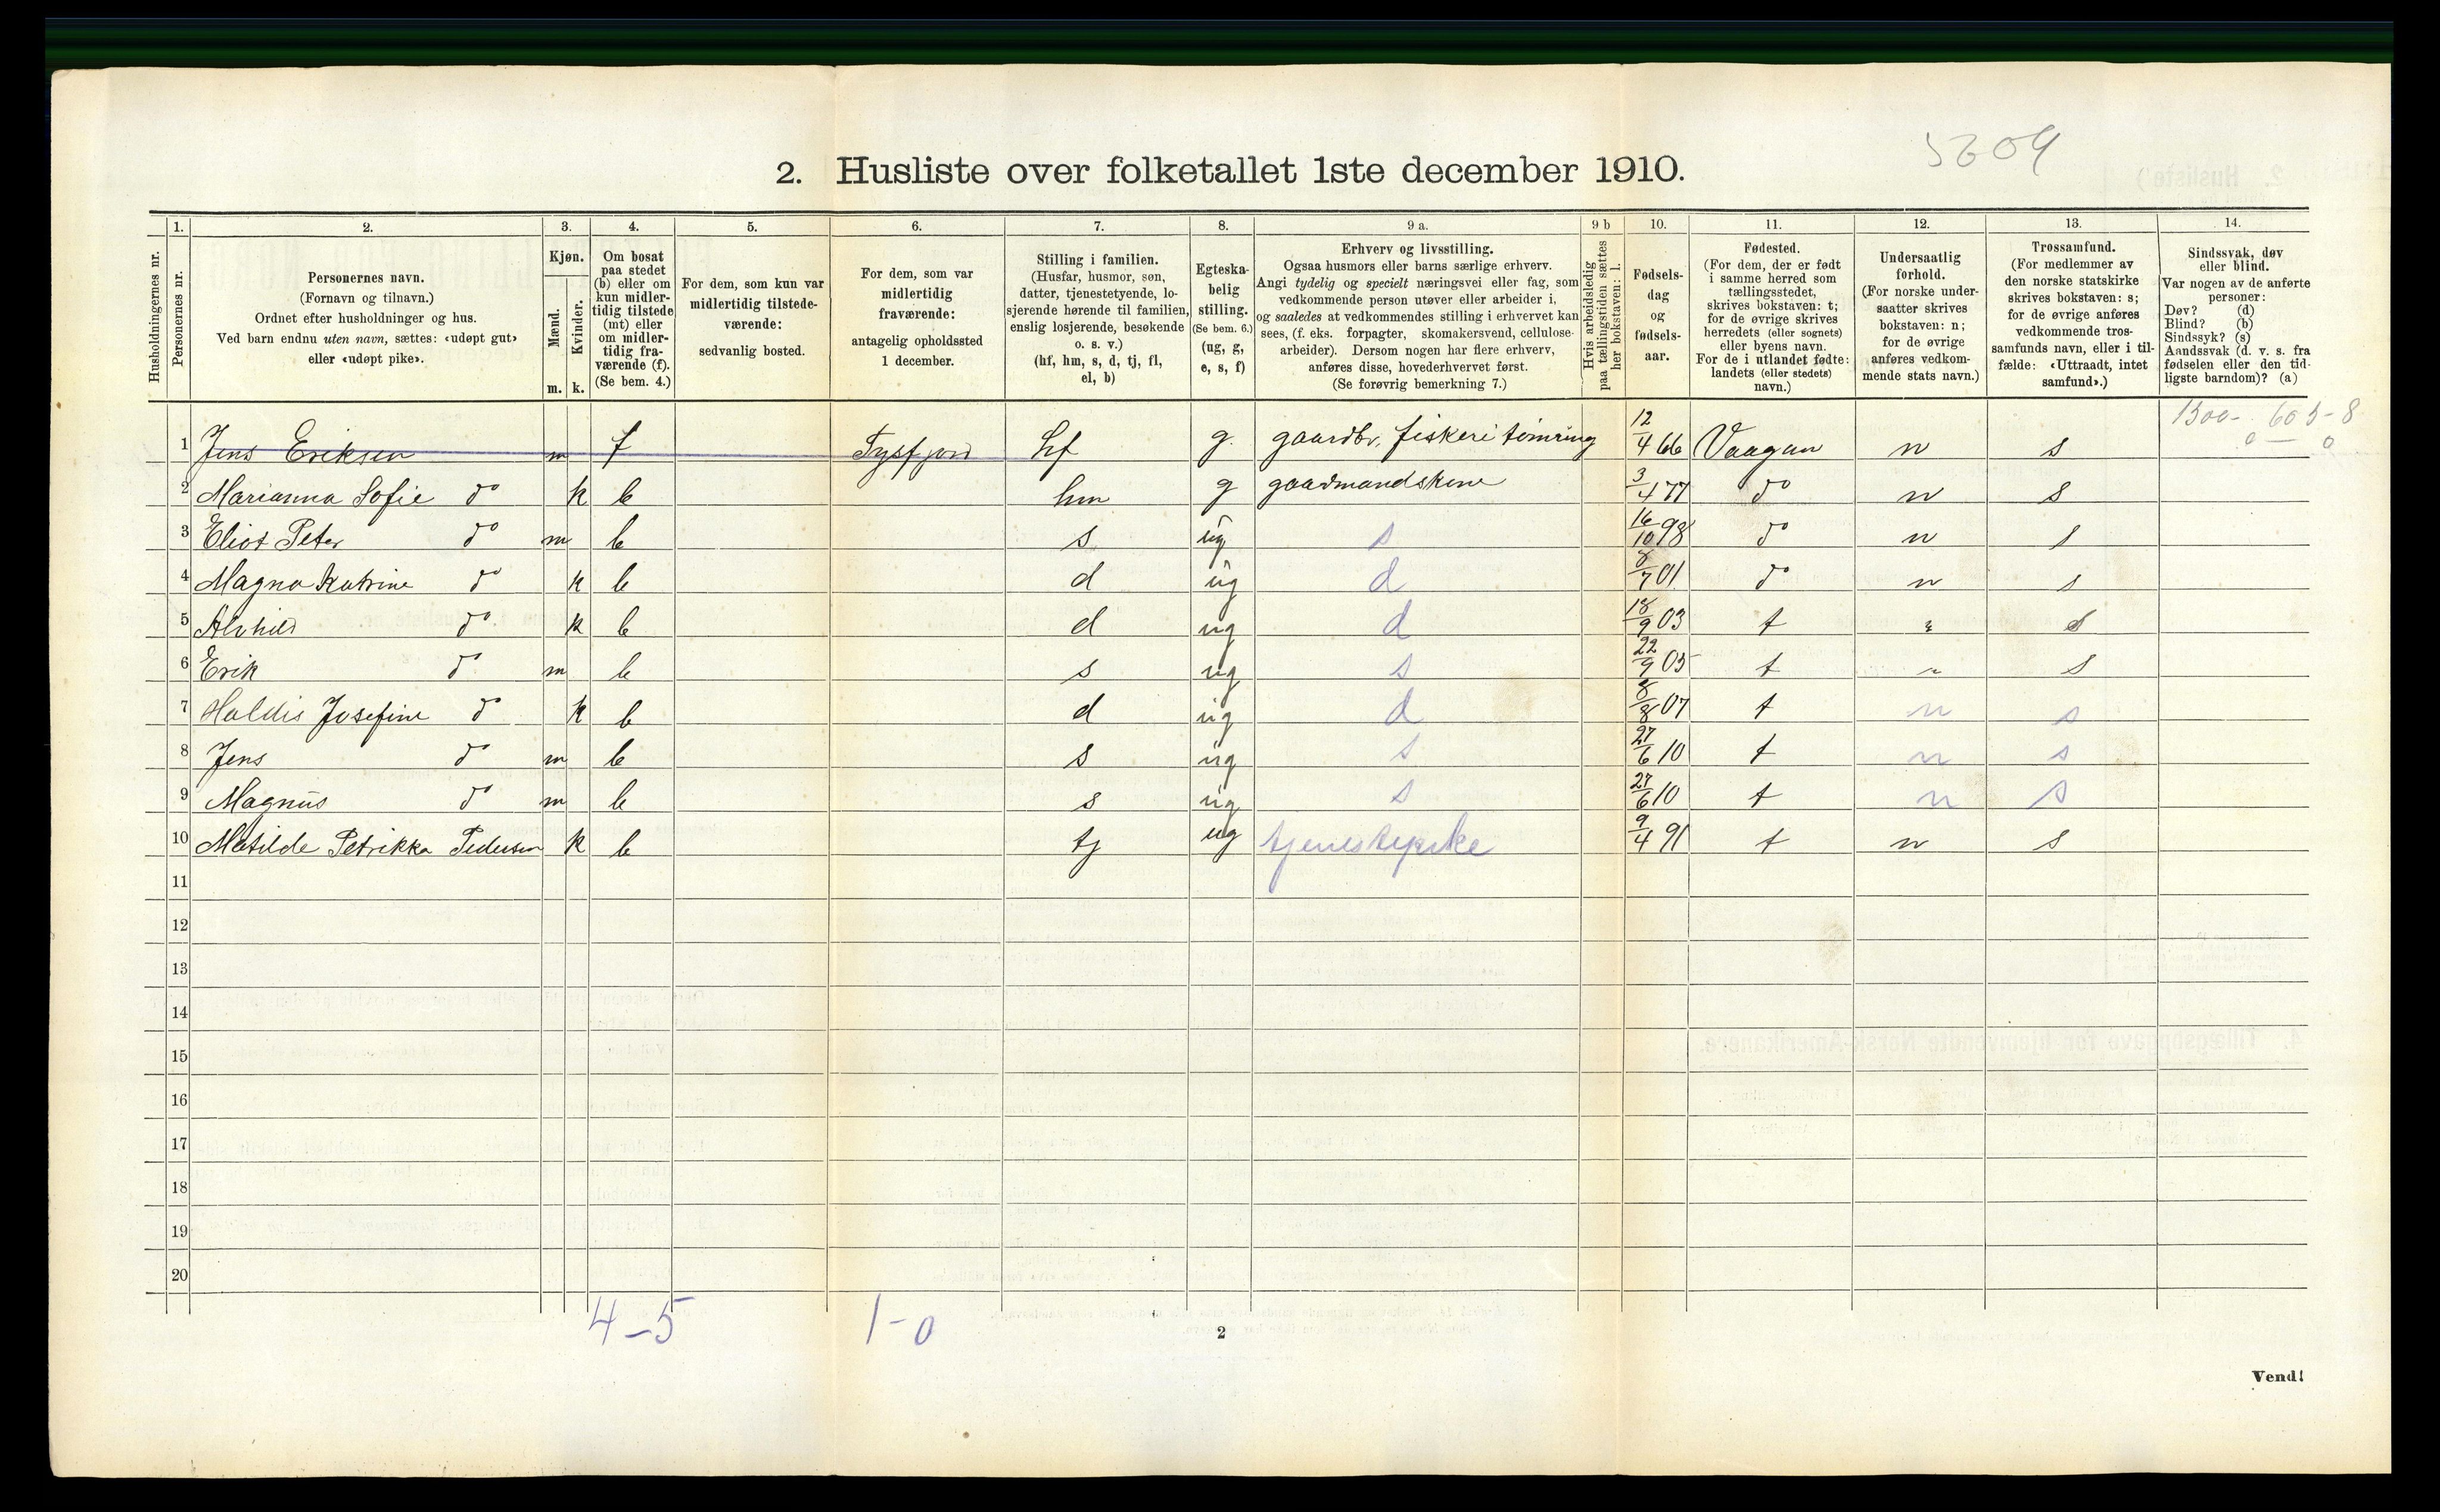 5209
2. Husliste over folketallet 1ste december 1910.
Husholdningernes nr.
1. Personernes nr.
2. Personernes navn. (Fornavn og tilnavn.) Ordnet efter husholdninger og hus. Ved barn endnu uten navn, sættes: «udøpt gut» eller «udøpt pike».
3. Kjøn. Mænd. m. Kvinder. k.
4. Om bosat paa stedet (b) eller om kun midlertidig tilstede (mt) eller om midlertidig fraværende (f). (Se bem. 4.)
5. For dem, som kun var midlertidig tilstedeværende: sedvanlig bosted.
6. For dem, som var midlertidig fraværende: antagelig opholdssted 1 december.
7. Stilling i familien. (Husfar, husmor, søn, datter, tjenestetyende, losjerende hørende til familien, enslig losjerende, besøkende o. s. v.) (hf, hm, s, d, tj, fl, el, b)
8. Egteskabelig stilling. (Se bem. 6.) (ug, g, e, s, f)
9 a. Erhverv og livsstilling. Ogsaa husmors eller barns særlige erhverv. Angi tydelig og specielt næringsvei eller fag, som vedkommende person utøver eller arbeider i, og saaledes at vedkommendes stilling i erhvervet kan sees, (f. eks. forpagter, skomakersvend, cellulosearbeider). Dersom nogen har flere erhverv, anføres disse, hovederhvervet først. (Se forøvrig bemerkning 7.)
9 b Hvis arbeidsledig paa tællingstiden sættes her bokstaven: l.
10. Fødselsdag og fødselsaar.
11. Fødested. (For dem, der er født i samme herred som tællingsstedet, skrives bokstaven: t; for de øvrige skrives herredets (eller sognets) eller byens navn. For de i utlandet fødte: landets (eller stedets) navn.)
12. Undersaatlig forhold. (For norske undersaatter skrives bokstaven: n; for de øvrige anføres vedkommende stats navn.)
13. Trossamfund. (For medlemmer av den norske statskirke skrives bokstaven: s; for de øvrige anføres vedkommende trossamfunds navn, eller i tilfælde: «Uttraadt, intet samfund».)
14. Sindssvak, døv eller blind. Var nogen av de anførte personer: Døv? (d) Blind? (b) Sindssyk? (s) Aandssvak (d. v. s. fra fødselen eller den tidligste barndom)? (a)
1300- 603-8
0 — 0
1 Jens Eriksen m f Tysfjord hf g. gaardbr, fiskeri tømring 12/4 66 Vaagan n s
2 Marianna Sofie do k b hm g gaardmandskone 3/4 77 do n s
3 Eliot Peter do m b s ug s 16/10 98 do n s
4 Magna Katrine do k b d ug d 8/7 01 do n s
5 Alvhild do k b d ug d 18/9 03 t " s
6 Erik do m b s ug s 22/9 05 t " s
7 Haldis Josefine do k b d ug d 8/8 07 t n s
8 Jens do m b s ug s 27/6 10 t n s
9 Magnus do m b s ug s 27/6 10 t n s
10 Matilde Petrikka Pedersen k b tj ug tjenestepike 9/4 91 t n s
11
12
13
14
15
16
17
18
19
20
4-5 1-0
2
Vend!